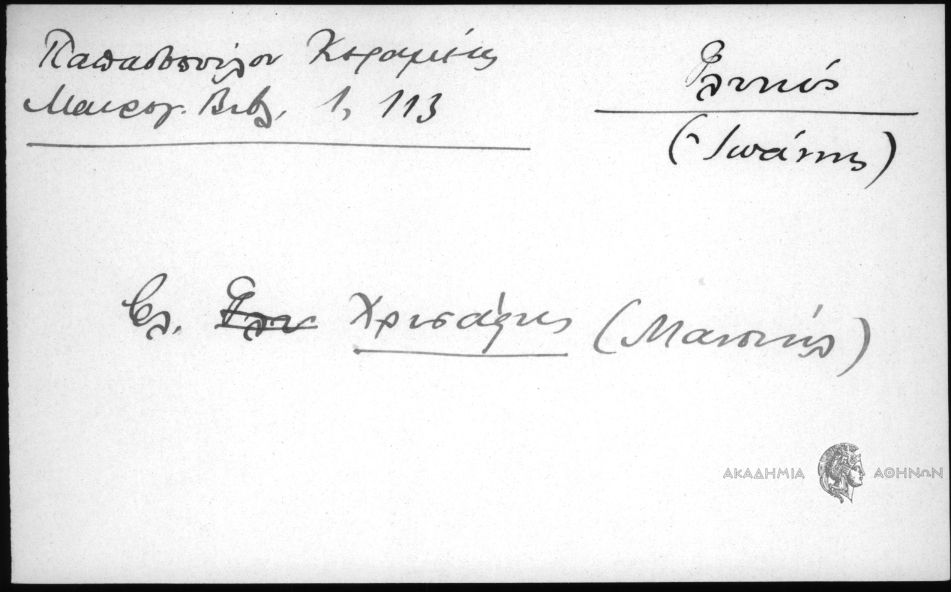 Παπαδοπούλου Κεραμεύς
Μαυρογ. Βιβλ. 1, 113
Γλυκύς
(Ἰωάννης)
βλ. Γλυ Χρυσάφης (Μανουήλ)
ΑΚΑΔΗΜΙΑ ΑΘΗΝΩΝ